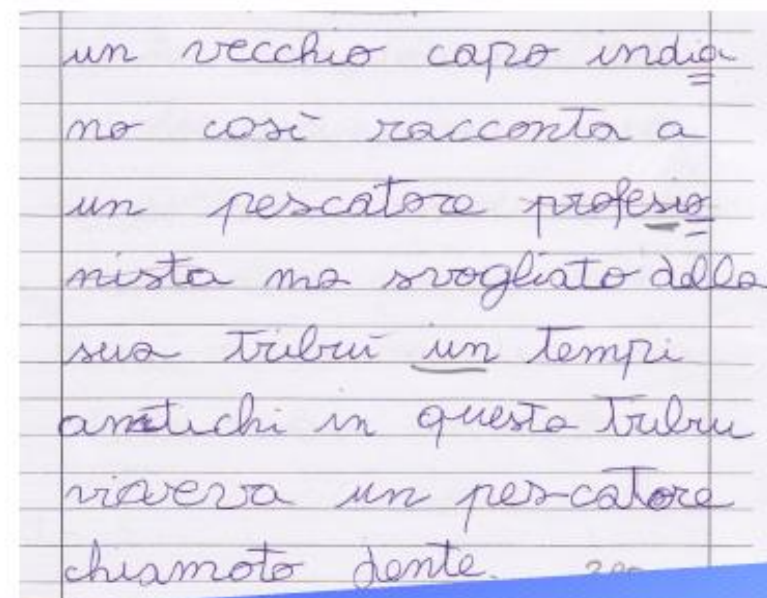 un vecchio capo india
no così racconta a
un pescatore profesio
nista ma svogliato della
sua tribrù un tempi
antichi in questa tribru
viveva un pescatore
chiamoto dente.